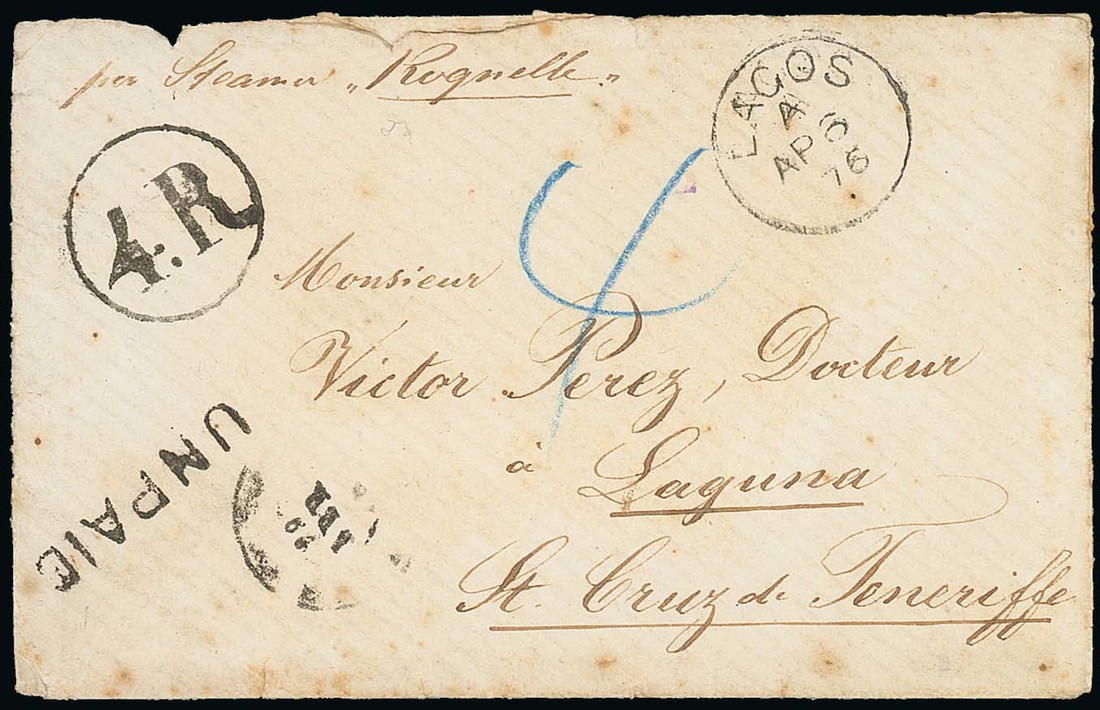 per Steamer „Roquelle"
LAGOS
A
AP 6
76
4.R
4
Monsieur
Victor Perez, Docteur
à
Laguna
St. Cruz de Teneriffe
UNPAID
ABR